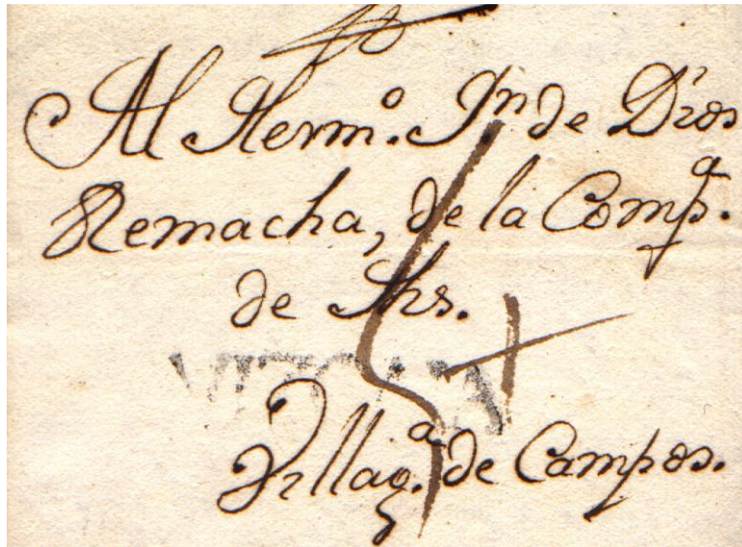 Al Herm.º Jn de Dios
Remacha, de la Comp.ª
de Jhs.
VITORIA
Villag.ª de Campos.